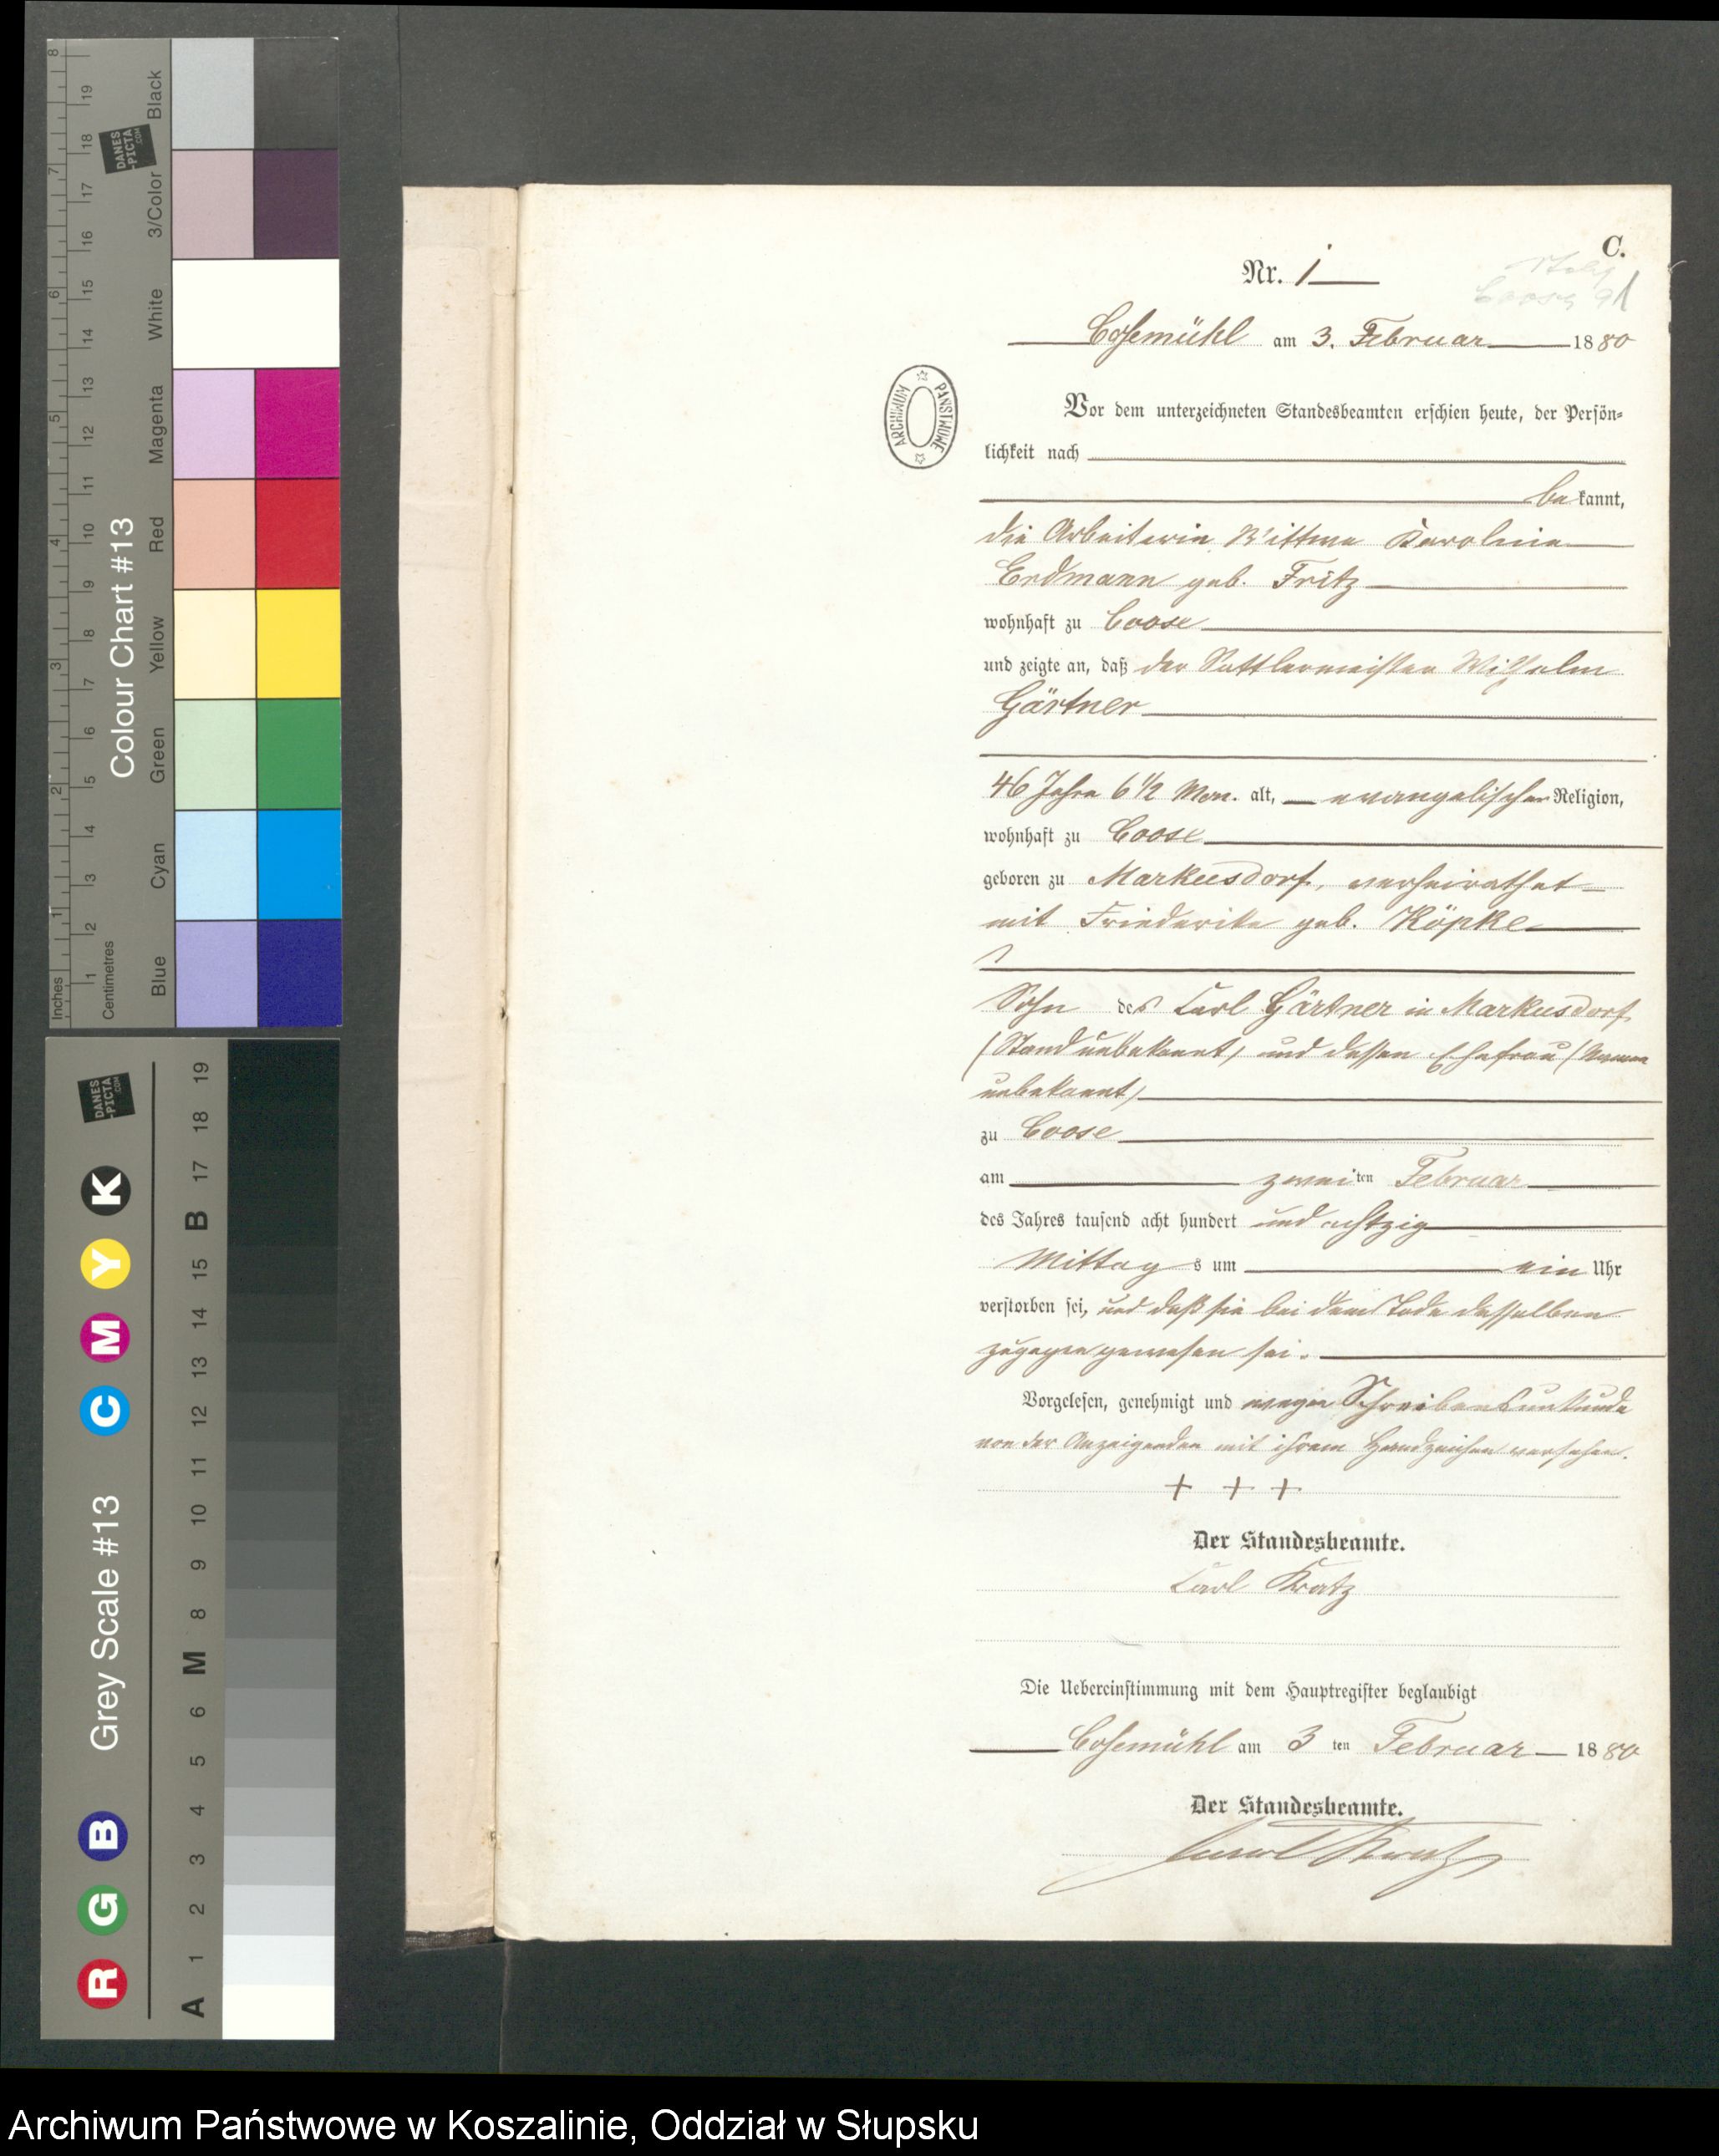 8
7
6
5
4
3
2
1
Inches
19
18
17
16
15
14
13
12
11
10
9
8
7
6
5
4
3
2
1
Centimetres
DANES
-PICTA
.COM
Colour Chart #13
Black
3/Color
White
Magenta
Red
Yellow
Green
Cyan
Blue
DANES
-PICTA
.COM
Grey Scale #13
R G B C M Y K
A 1 2 3 4 5 6 M 8 9 10 11 12 13 14 15 B 17 18 19
C.
Nr. 1
Coose 91
Cosemühl am 3. Februar 1880
ARCHIWUM PAŃSTWOWE
Vor dem unterzeichneten Standesbeamten erschien heute, der Persön-
lichkeit nach
be kannt,
die Arbeiterin Wittwe Karoline
Erdmann geb. Fritz
wohnhaft zu Coose
und zeigte an, daß der Sattlermeister Wilhelm
Gärtner
46 Jahre 6 1/2 Mon. alt, evangelischer Religion,
wohnhaft zu Coose
geboren zu Markusdorf, verheirathet
mit Friederike geb. Köpke
Sohn des Carl Gärtner in Markusdorf
(Stand unbekannt) und dessen Ehefrau (Namen
unbekannt)
zu Coose
am zweiten Februar
des Jahres tausend acht hundert und achtzig
Mittag s um ein Uhr
verstorben sei, und daß sie bei dem Tode desselben
zugegen gewesen sei.
Vorgelesen, genehmigt und wegen Schreibensunkunde
von der Anzeigenden mit ihrem Handzeichen versehen.
+ + +
Der Standesbeamte.
Carl Kratz
Die Uebereinstimmung mit dem Hauptregister beglaubigt
Cosemühl am 3 ten Februar 1880
Der Standesbeamte.
Carl Kratz
Archiwum Państwowe w Koszalinie, Oddział w Słupsku